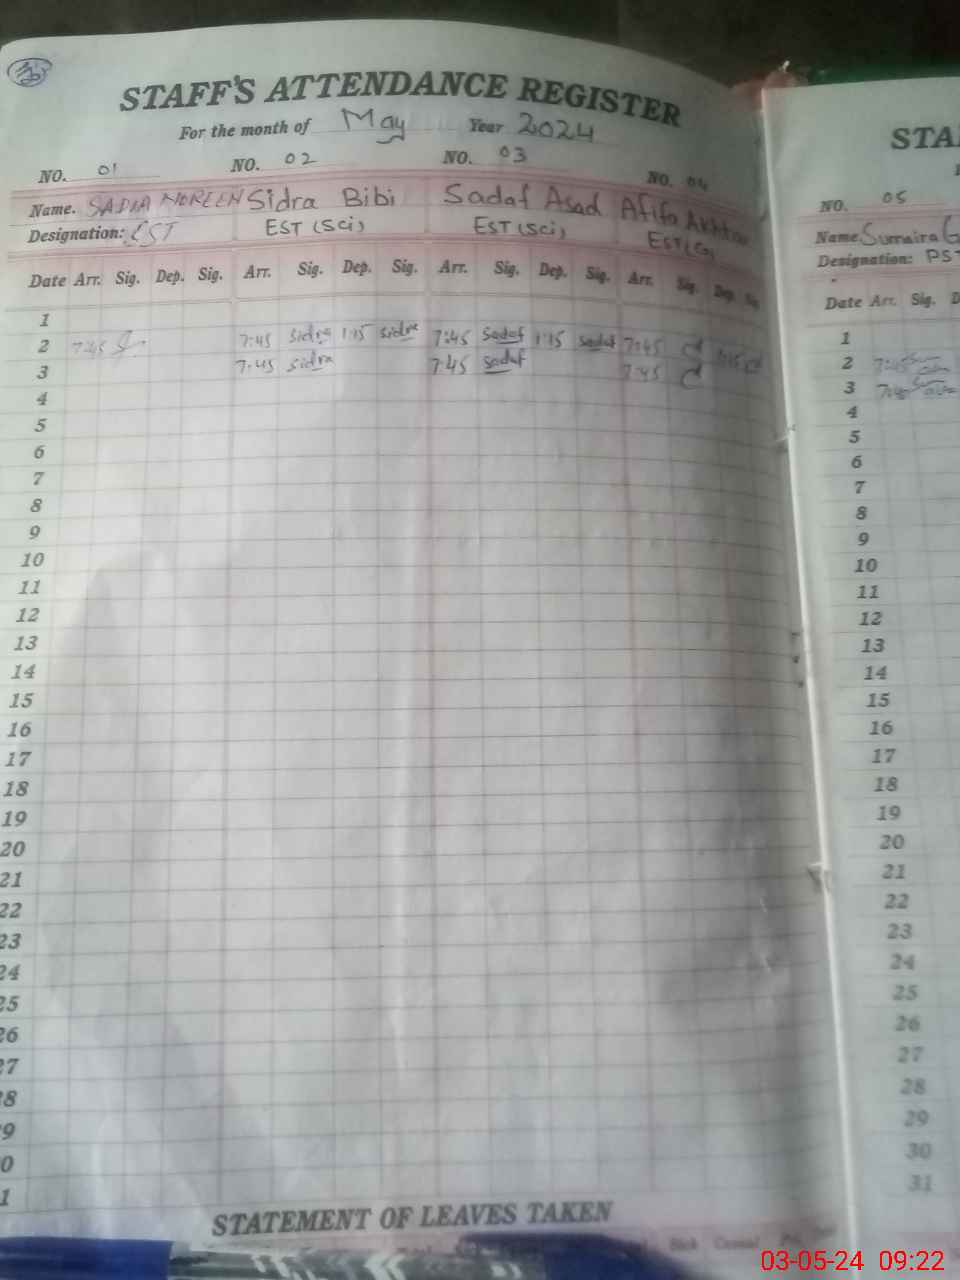 STAFF'S ATTENDANCE REGISTER
For the month of May Year 2024
NO. 01 NO. 02 NO. 03 NO. 04
Name. SADIA NOREEN Sidra Bibi Sadaf Asad Afifa Akhtar
Designation: EST EST (Sci) EST (Sci) EST(G)
Date Arr. Sig. Dep. Sig. Arr. Sig. Dep. Sig. Arr. Sig. Dep. Sig. Arr. Sig. Dep. Sig.
1
2 7:45 7:45 sidra 1:15 sidra 7:45 sadaf 1:15 sadaf 7:45 1:15
3 7:45 sidra 7:45 sadaf 7:45
4
5
6
7
8
9
10
11
12
13
14
15
16
17
18
19
20
21
22
23
24
25
26
27
8
9
0
1
STATEMENT OF LEAVES TAKEN
Sick Casual
STA
NO. 05
Name Sumaira G
Designation: PST
Date Arr. Sig. D
1
2 7:45
3 7:45
4
5
6
7
8
9
10
11
12
13
14
15
16
17
18
19
20
21
22
23
24
25
26
27
28
29
30
31
03-05-24 09:22